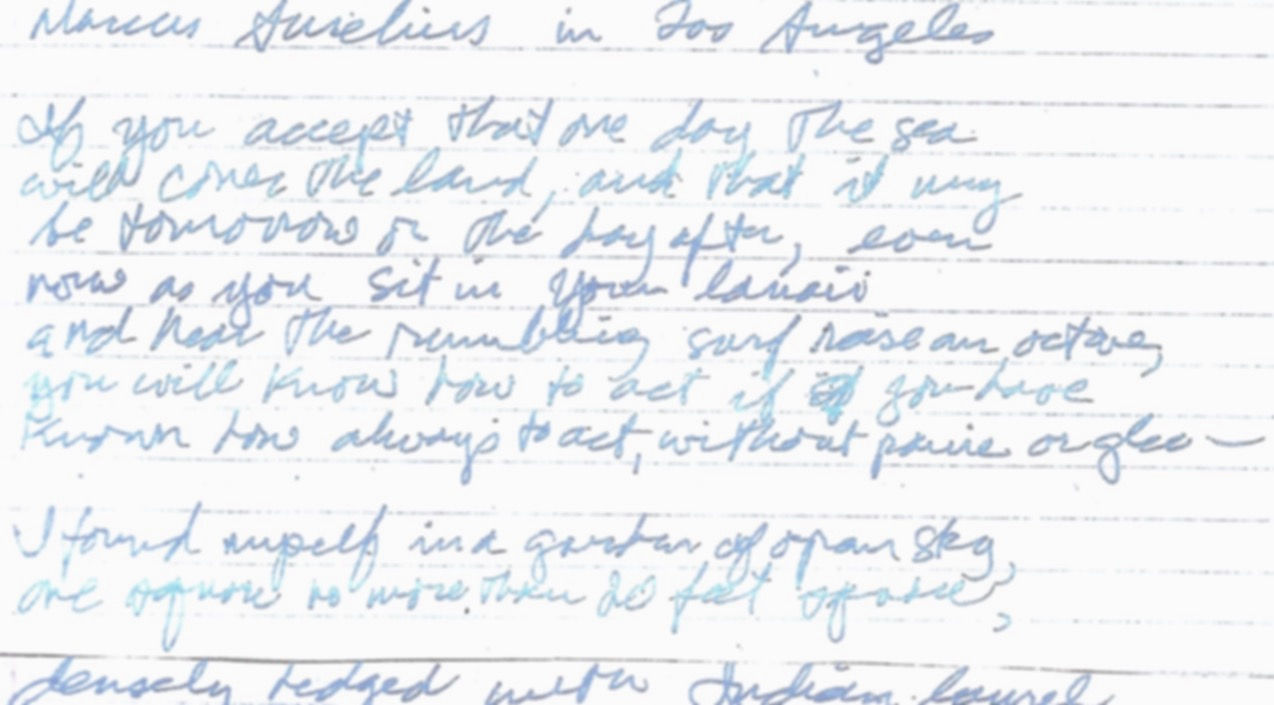 Marcus Aurelius in Los Angeles
If you accept that one day the sea
will cover the land, and that it may
be tomorrow or the day after, even
now as you sit in your lanai
and hear the rumbling surf raise an octave,
you will know how to act if you have
known how always to act, without panic or glee —
I found myself in a garden of open sky,
one square no more than 20 feet square,
densely hedged with Indian laurel